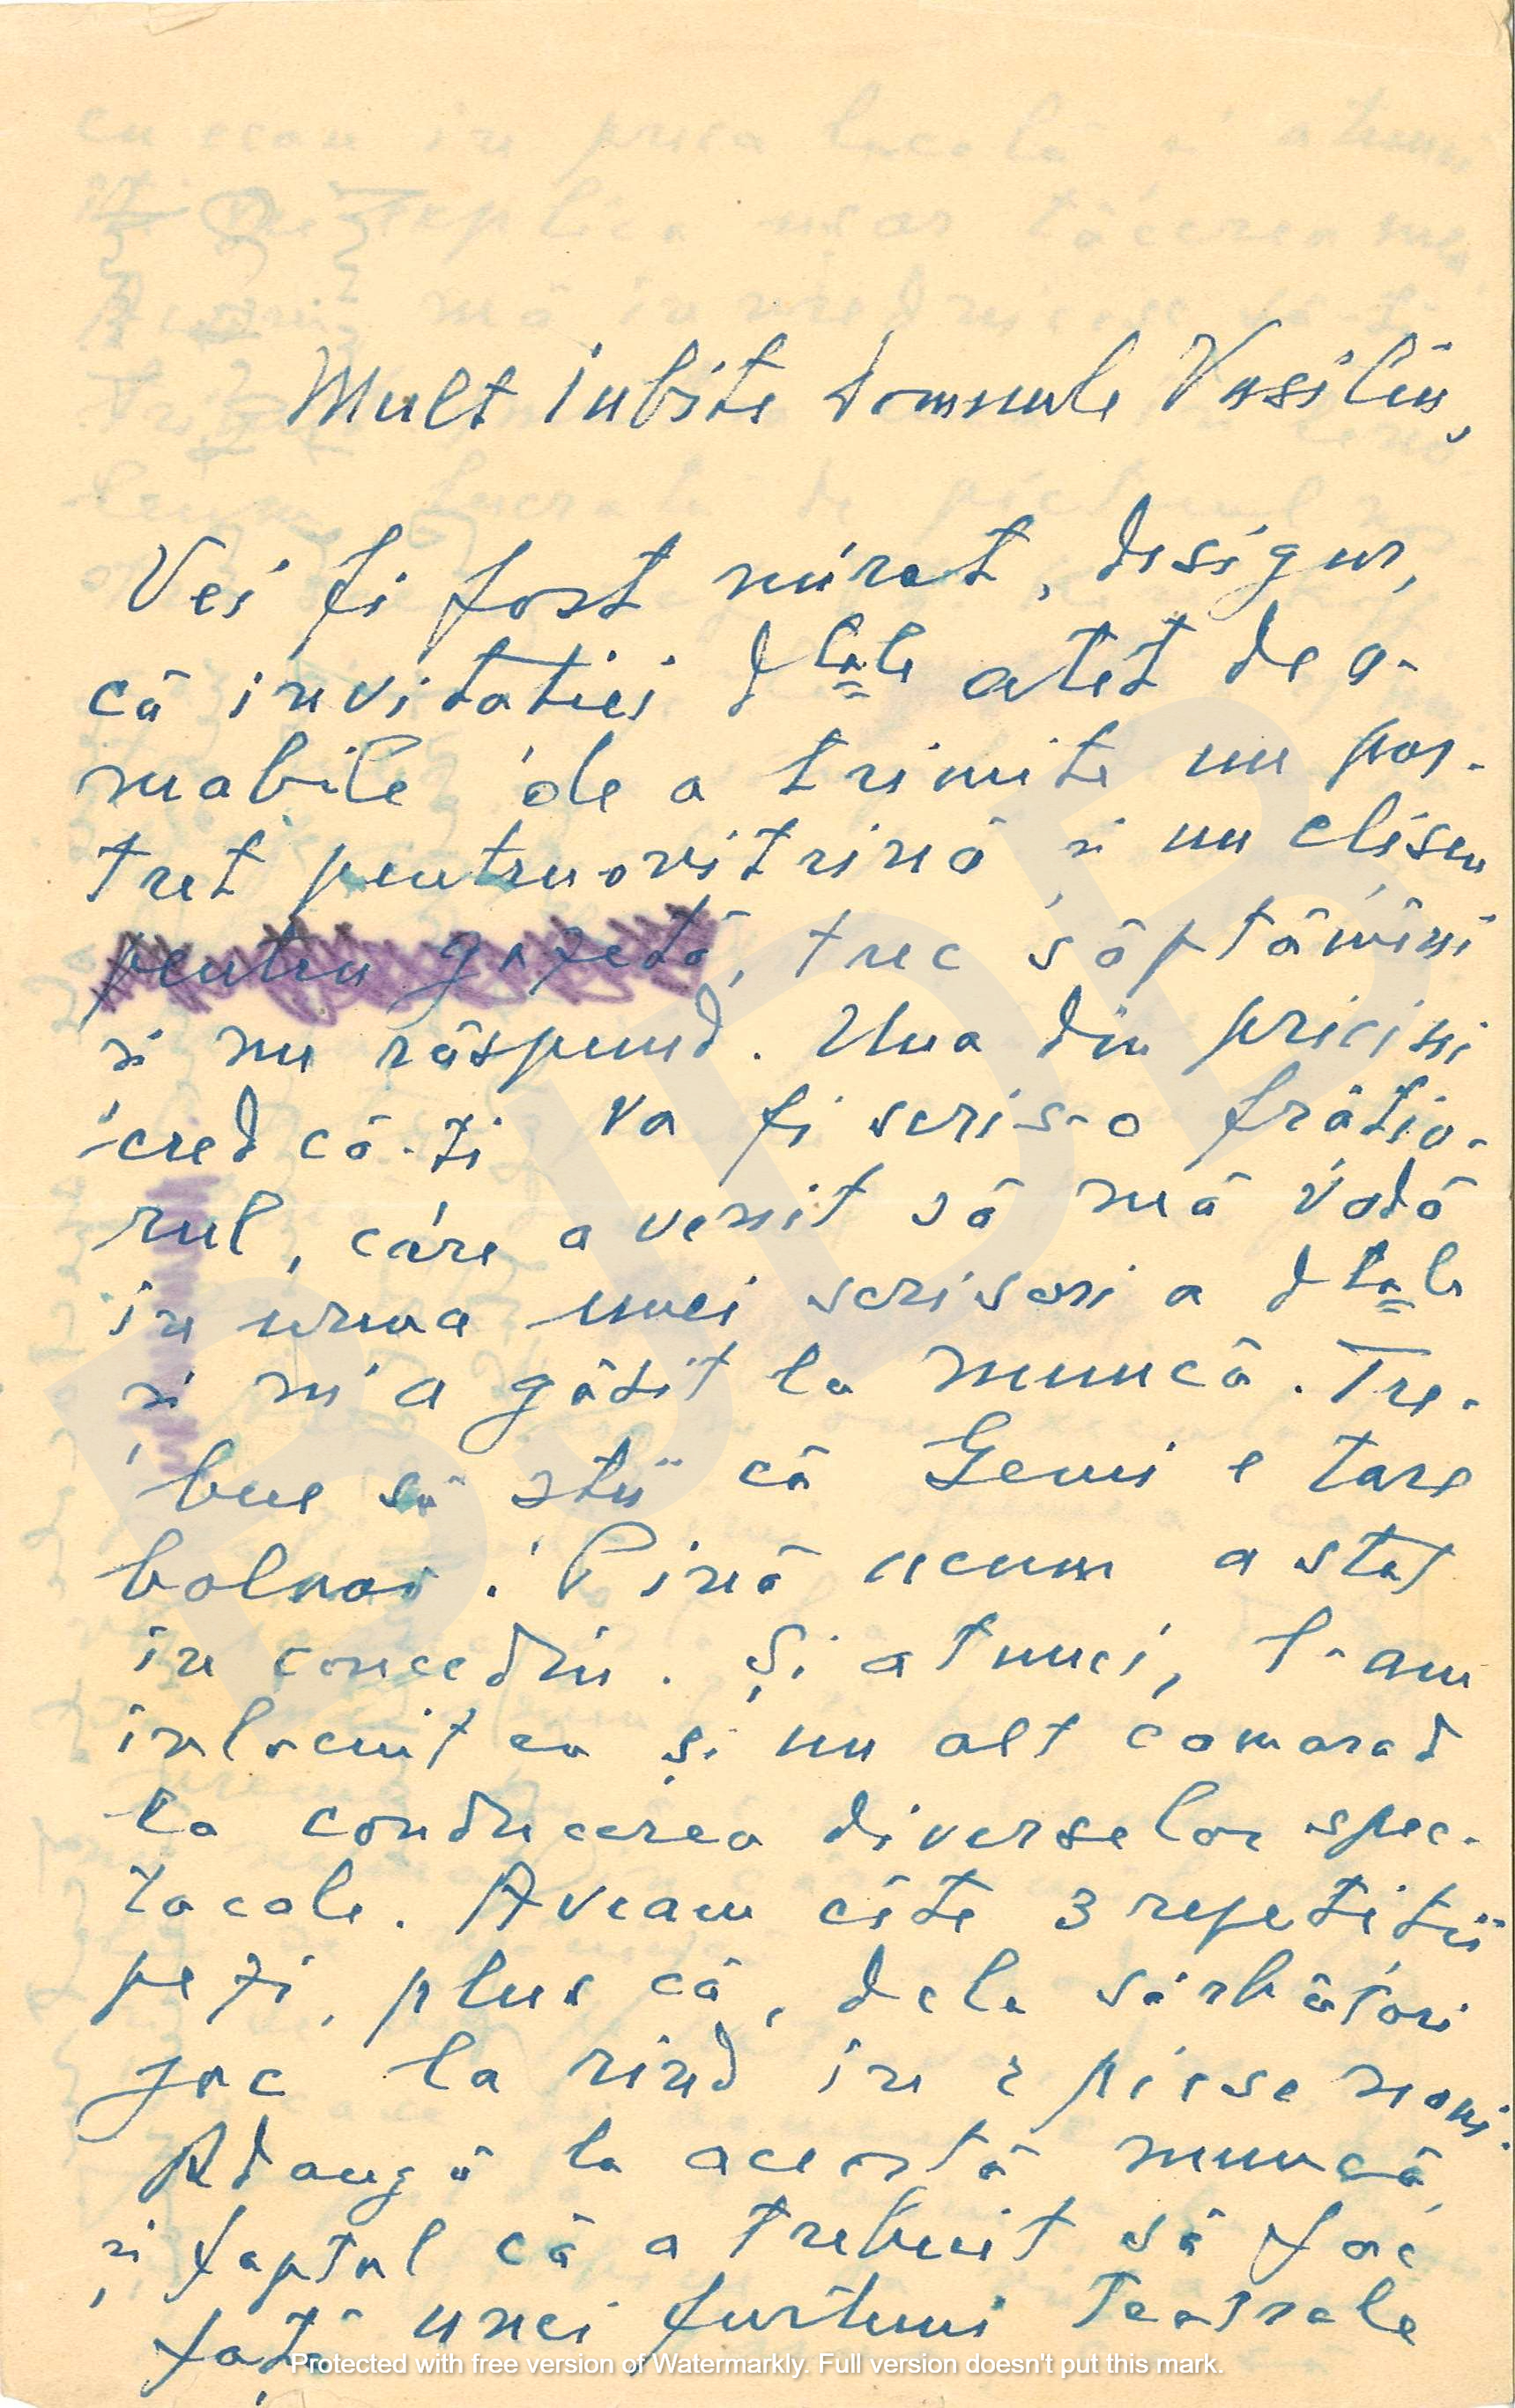 Mult iubite domnule Vasiliu,
Vei fi fost mirat, desigur,
că invitației dtale atât de a-
mabile de a trimite un por-
tret pentru o vitrină și un clișeu
pentru gazetă, trec săptămîni
și nu răspund. Una din pricini
cred că-ți va fi scris-o frățio-
rul, care a venit să mă vadă
în urma unei scrisori a dtale
și m'a găsit la muncă. Tre-
bue să știi că Gemi e tare
bolnav. Pînă acum a stat
în concediu. Și atunci, l-am
inlocuit eu și un alt camarad
la conducerea diverselor spec-
tacole. Aveam cîte 3 repetiții
pe zi, plus că, dela sărbători
joc la rînd în 2 piese noui.
Adaugă la aceastā muncă,
și faptul că a trebuit să fac
față unei furtuni teatrale
Protected with free version of Watermarkly. Full version doesn't put this mark.